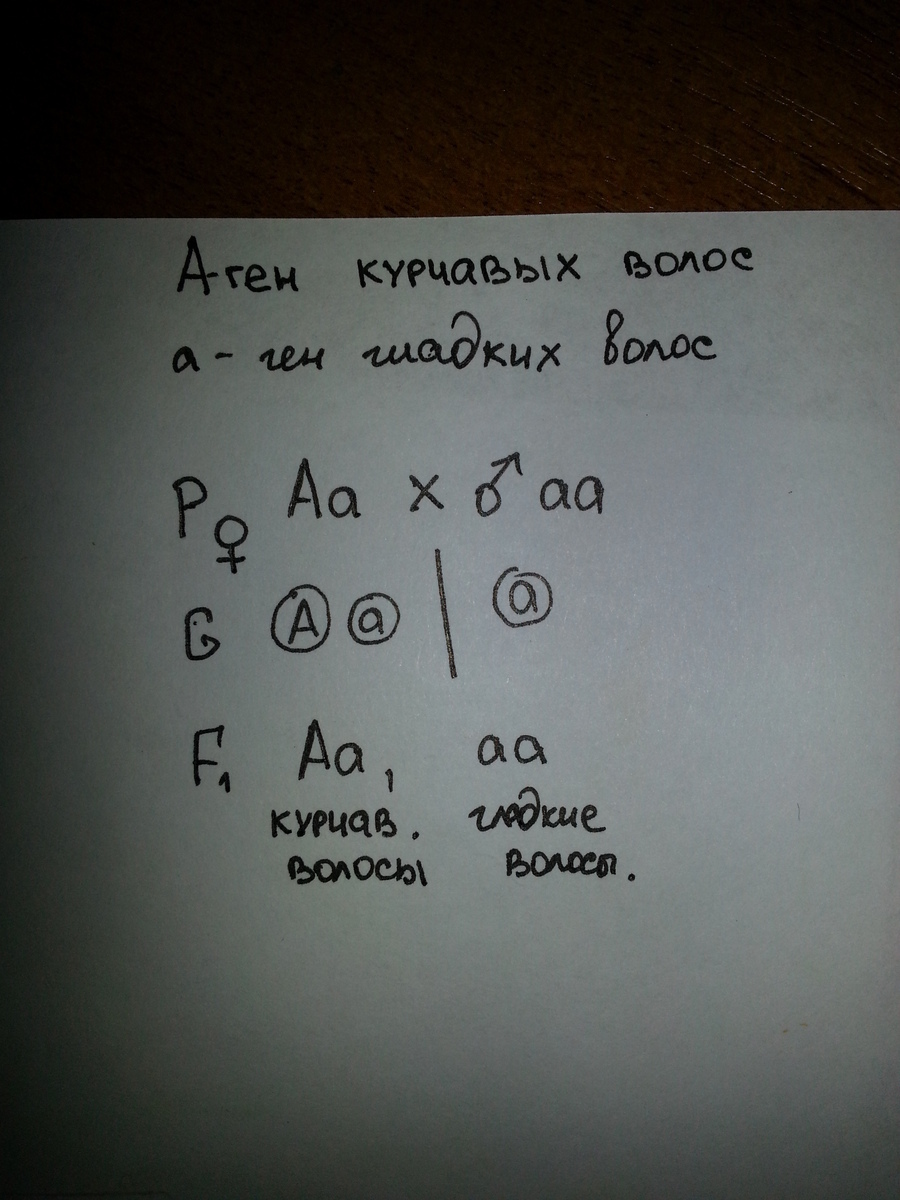 А-ген курчавых волос
а - ген гладких волос
P ♀ Аа х ♂ аа
G А а | а
F₁ Аа, аа
курчав. гладкие
волосы волосы.